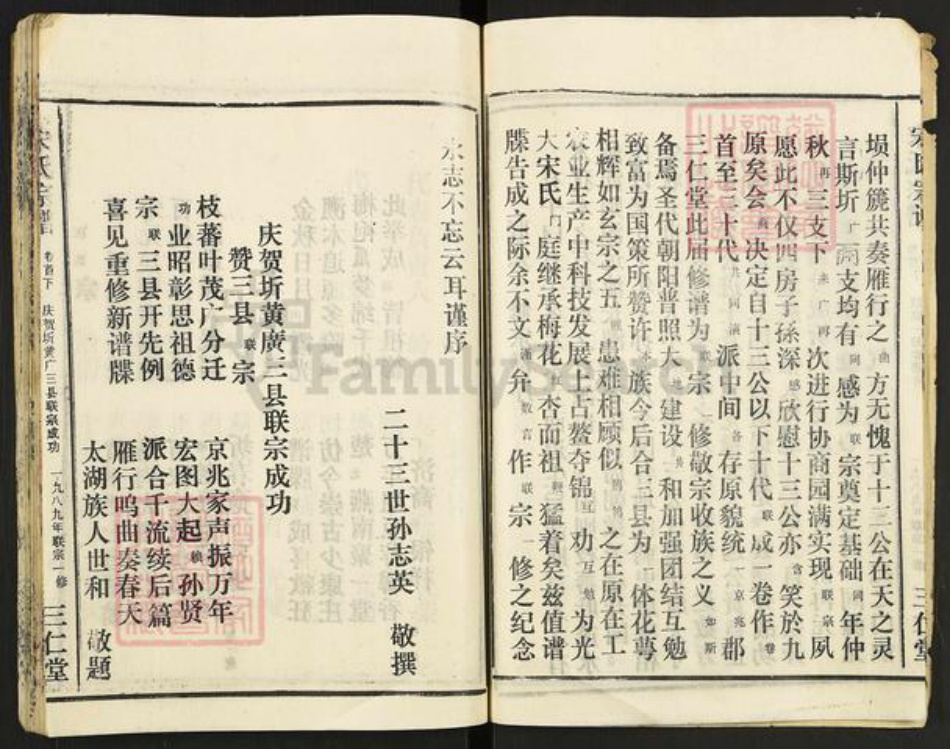 埙仲篪共奏雁行之曲一方无愧于十三公在天之灵
言斯圻广两支均有同感为联宗奠定基础同年仲
秋再三支下来广再次进行协商园满实现联宗夙
愿此不仅四房子孙深感欣慰十三公亦含笑於九
原矣会商决定自十三公以下十代联成一卷作卷
首至二十代共同演派中间各存原貌统一京兆郡
三仁堂此届修谱为敬宗一修敬宗收族之义如斯
备焉圣代朝阳普照大地建设共和加强团结互勉
致富为国策所赞许本族今后合三县为一体花萼
相辉如玄宗之五患难相顾似之在原在工
农业生产中科技发展上占鳌夺锦宜劝互勉为光
大宋氏门庭继承梅花红杏而祖鞭猛着矣兹值谱
牒告成之际余不文弁数言作联宗一修之纪念
永志不忘云耳谨序
二十三世孙志英 敬撰
庆贺圻黄廣三县联宗成功
赞三县联宗
枝蕃叶茂广分迁 京兆家声振万年
功业昭彰思祖德 宏图大起赖孙贤
宗联三县开先例 派合千流续后篇
喜见重修新谱牒 雁行鸣曲奏春天
太湖族人世和 敬题
宋氏宗谱 卷首下 庆贺圻黄广三县联宗成功 一九八九年联宗一修 三仁堂
FamilySearch